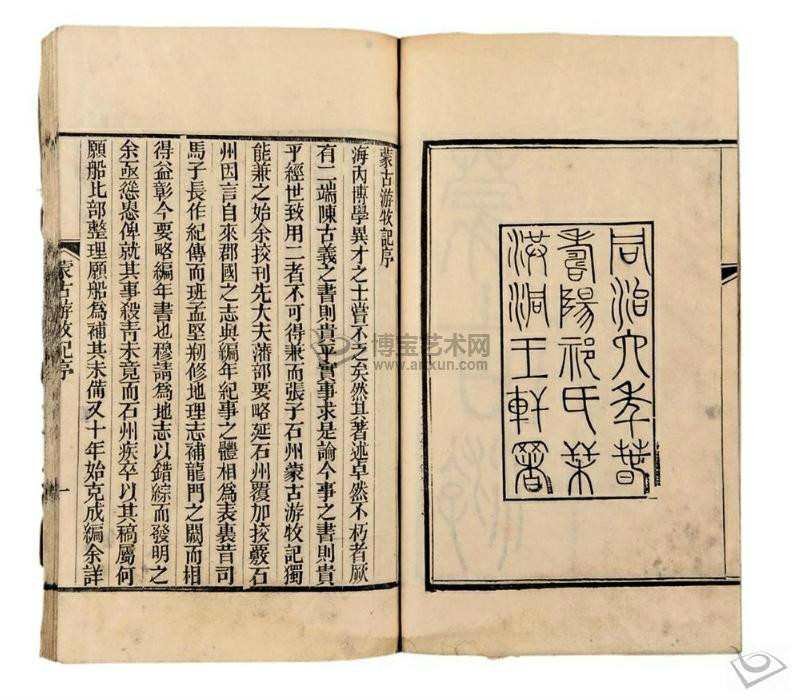 同治六年春
壽陽祁氏栞
洪洞王軒署
蒙古游牧記序
海內博學異才之士嘗不乏矣然其著述卓然不朽者厥
有二端陳古義之書則貴乎實事求是論今事之書則貴
乎經世致用二者不可得兼而張子石州蒙古游牧記獨
能兼之始余挍刊先大夫藩部要略延石州覆加挍覈石
州因言自來郡國之志與編年紀事之體相爲表裏昔司
馬子長作紀傳而班孟堅剏修地理志補龍門之闕而相
得益彰今要略編年書也穆請爲地志以錯綜而發明之
余亟慫恿俾就其事殺靑未竟而石州疾卒以其稿屬何
願船比部整理願船爲補其未備又十年始克成編余詳
蒙古游牧記序
一
博宝艺术网
www.artxun.com